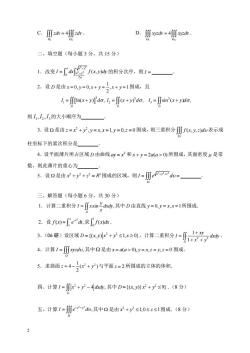 C. ∭_{Ω₁} zdv = 4∭_{Ω₂} zdv . D. ∭_{Ω₁} xyzdv = 4∭_{Ω₂} xyzdv .
二、填空题(每小题 3 分,共 15 分)
1. 改变 I = f(x, y)dy 的积分次序,则 I = .
2. 设 D 是由 x = 0, y = 0, x + y = 1/2, x + y = 1 围成,且
I₁ = ∬_D [ln(x + y)]³dσ, I₂ = ∬_D (x + y)³dσ, I₃ = ∬_D sin³(x + y)dσ,
则 I₁, I₂, I₃ 的大小顺序为 .
3. 设 Ω 是由 z = x² + y², y = x, x = 1, y = 0, z = 0 围成,则三重积分 ∭_Ω f(x, y, z)dv 表示成
柱坐标下的累次积分是 .
4. 设平面薄片所占区域 D 由曲线 ay = x² 和 x + y = 2a(a > 0) 所围成,其面密度 μ 是常
数,则此薄片的重心为 .
5. 设 Ω 是由 x² + y² + z² = R² 围成的区域,则 I = ∭_Ω dv = .
三、解答题(每小题 6 分,共 30 分)
1. 计算二重积分 I = ∬_D x sin (y/x) dxdy, 其中 D 由直线 y = 0, y = x, x = 1 所围成.
2. 设 f(x) = dt, 求 ∫₀¹ f(x)dx .
3.(06 研)设区域 D = {(x, y)| x² + y² ≤ 1, x ≥ 0}, 计算二重积分 I = ∬_D (1 + xy)/(1 + x² + y²) dxdy.
4. 计算 I = ∭_Ω xyzdv, 其中 Ω 是由 x = a(a > 0), y = x, z = y, z = 0 围成.
5. 求曲面 z = 4 − 1/2(x² + y²) 与平面 z = 2 所围成的立体的体积.
四、计算 I = ∬_D |x² + y² − 4|dxdy, 其中 D = {(x, y)| x² + y² ≤ }.(8 分)
五、计算 I = ∭_Ω dv, 其中 Ω 是由 x² + y² ≤ 1, 0 ≤ z ≤ 1 围成.(8 分)
2